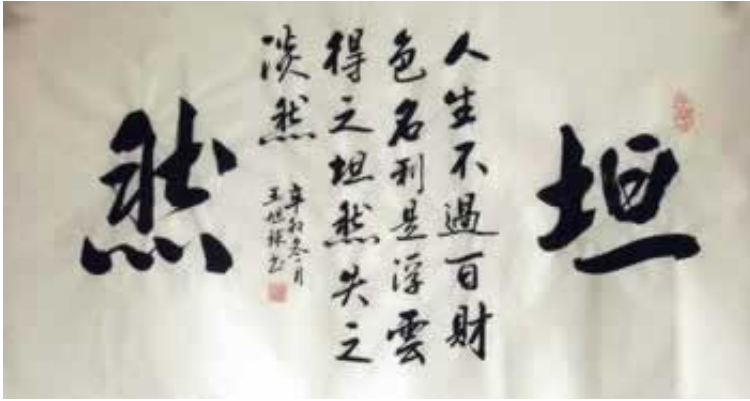 坦然
人生不過百財
色名利是浮雲
得之坦然失之
淡然
辛卯冬月
王旭书